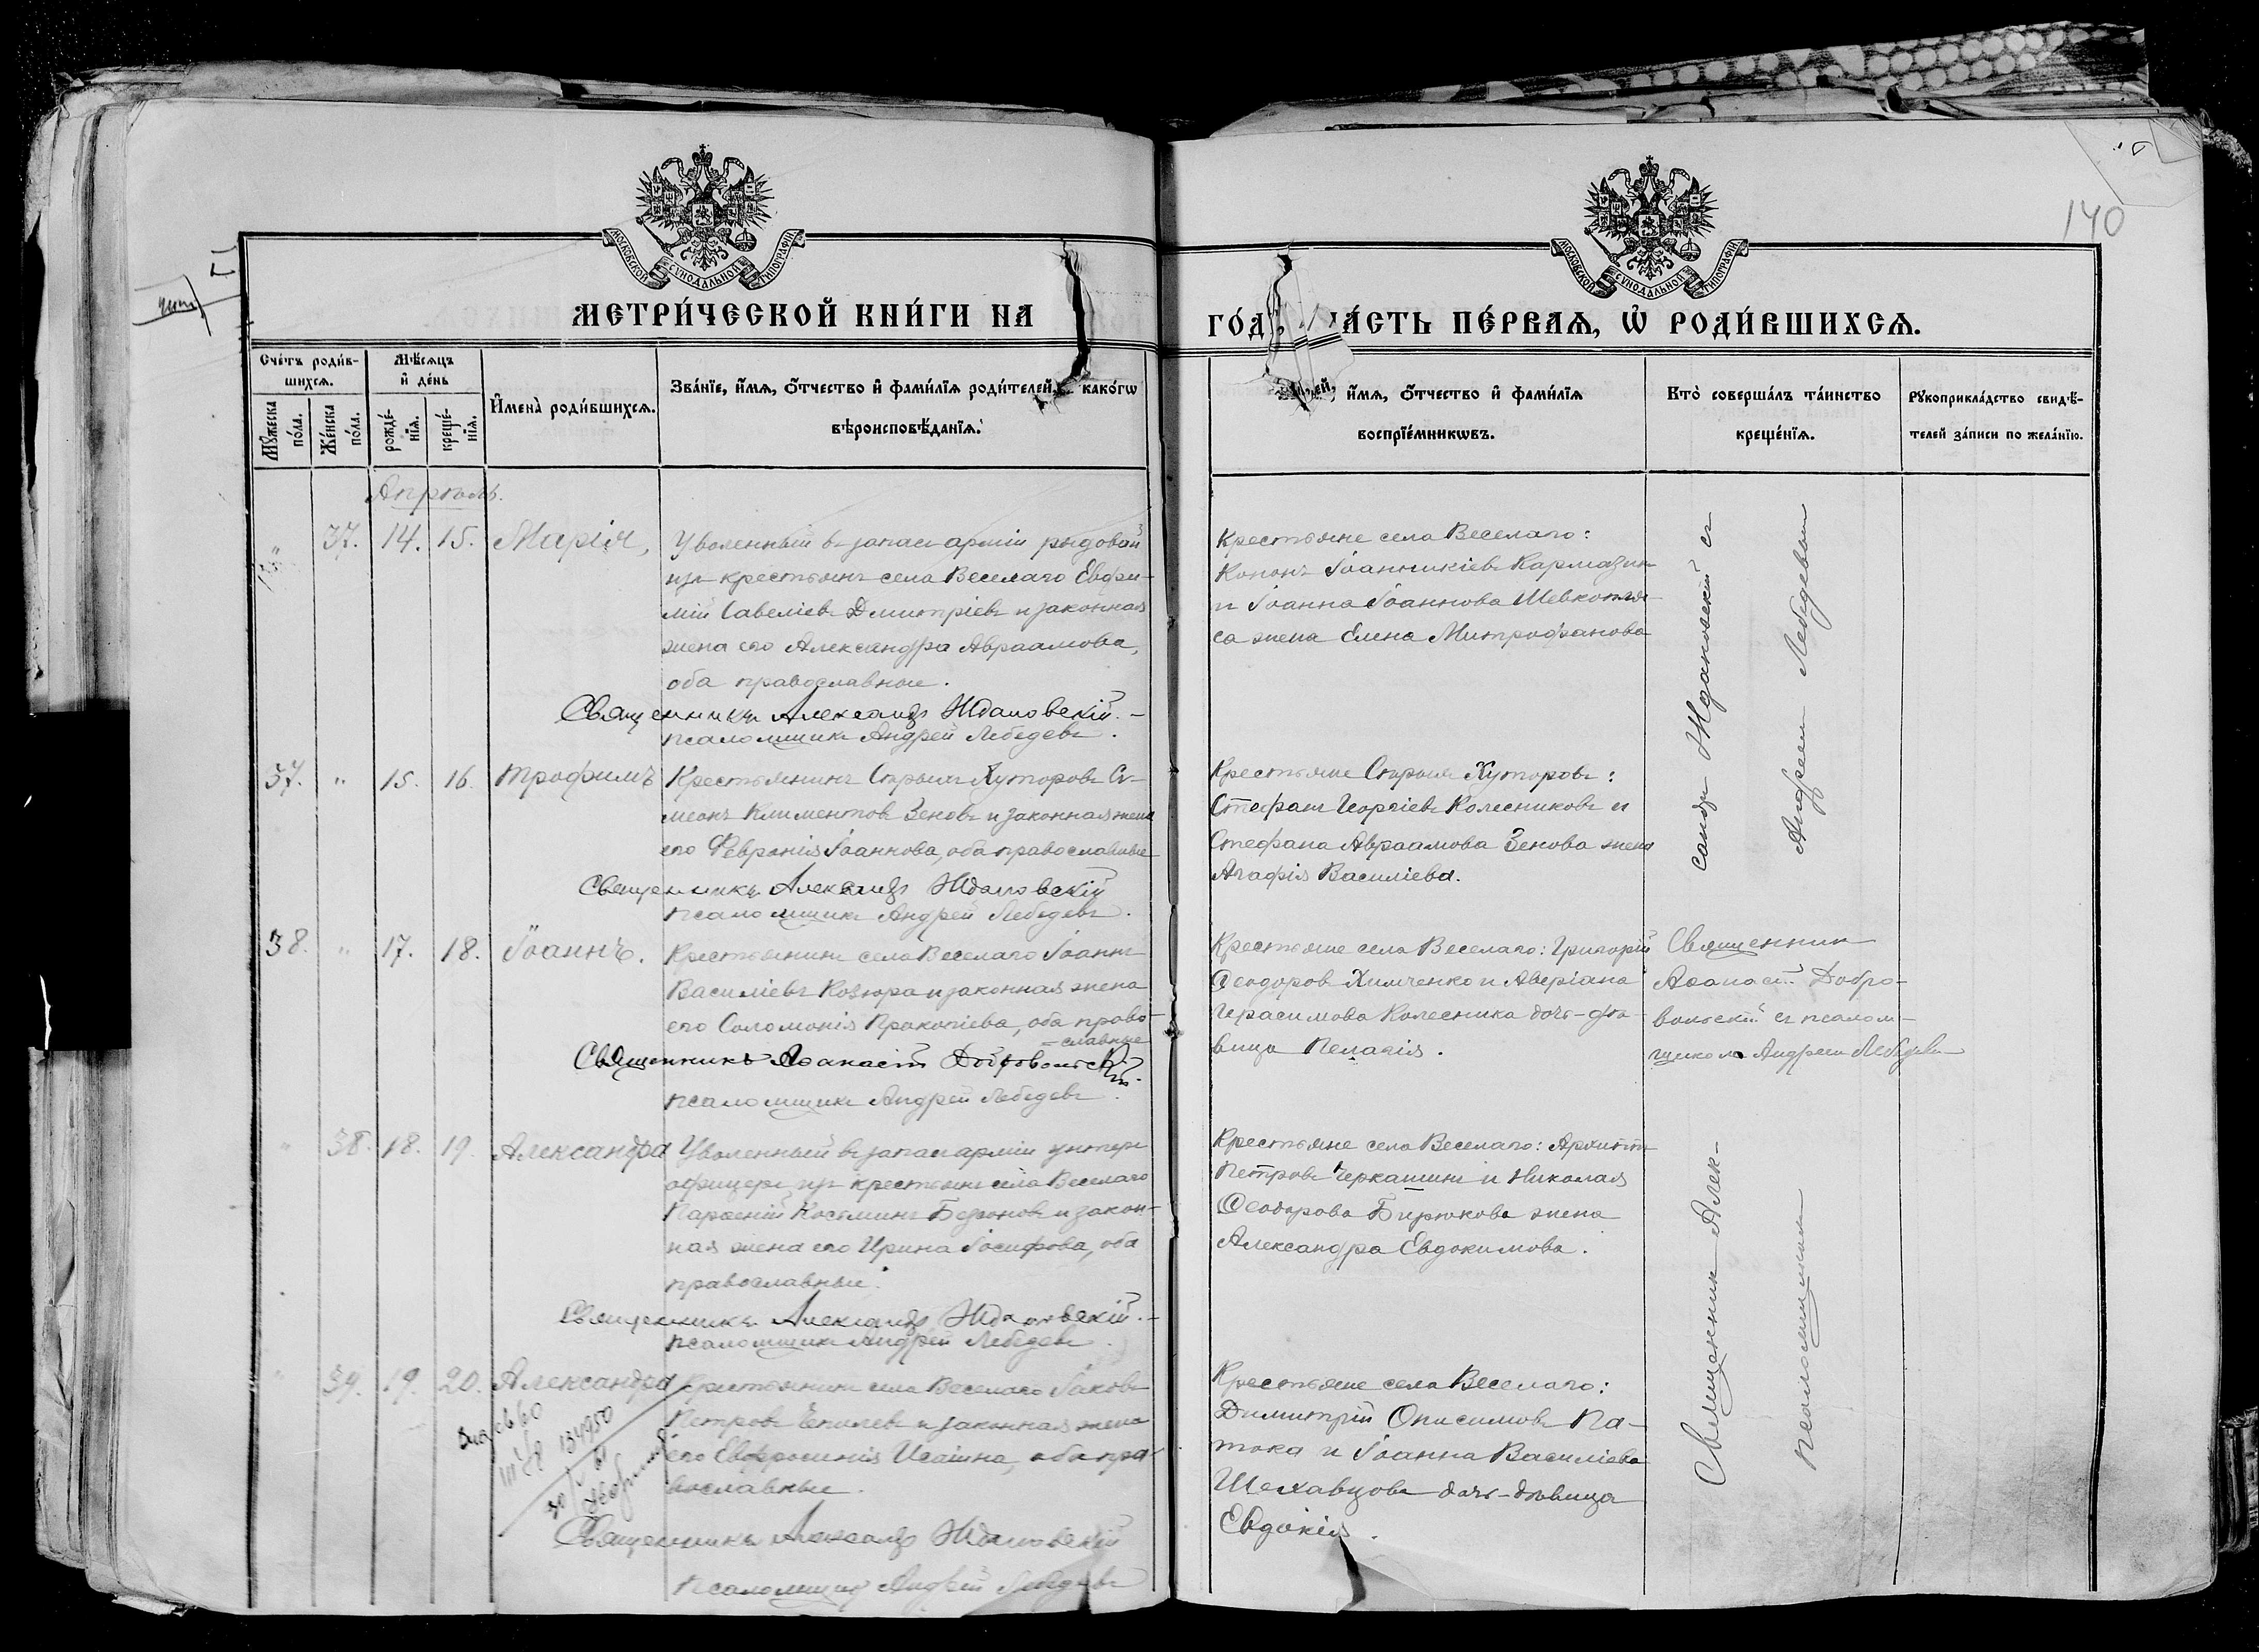 140
МОСКОВСКОЙ СѴНОДАЛЬНОЙ ТИПОГРАФІИ
МОСКОВСКОЙ СѴНОДАЛЬНОЙ ТИПОГРАФІИ
МЕТРИ́ЧЕСКОЙ КНИ́ГИ НА
ГО́Д ЧА́СТЬ ПЕ́РВАѦ, Ѿ РОДИ́ВШИХСѦ.
Сче́тъ роди́в-
шихсѧ.
Мꙋ́жеска
по́ла.
Же́нска
по́ла.
Мѣ́сѧцъ
и҆ де́нь
рожде́-
нїѧ.
креще́-
нїѧ.
И҆мена̀ роди́вшихсѧ.
Зва́нїе, и҆́мѧ, ѻ҆́тчество и҆ фами́лїѧ роди́телей, како́гѡ
вѣроисповѣ́данїѧ.
и҆́мѧ, ѻ҆́тчество и҆ фами́лїѧ
воспрїе́мникѡвъ.
Кто̀ соверша́лъ та́инство
креще́нїѧ.
Рꙋкоприкла́дство свидѣ́-
телей за́писи по жела́нїю.
Апрѣль.
" 37. 14. 15. Марія,
Уволенный в запас арміи рядовой
изъ крестьянъ села Веселаго Евфи-
мій Савеліевъ Дмитріевъ и законная
жена его Александра Авраамова,
оба православные.
Священникъ Александръ Ждановскій.
псаломщикъ Андрей Лебедевъ.
Крестьяне села Веселаго:
Кононъ Іоанникіевъ Кармазинъ
и Іоанна Іоаннова Шевкопля-
са жена Елена Митрофанова
37. " 15. 16. Трофимъ
Крестьянинъ Старыхъ Хуторовъ Си-
меонъ Климентовъ Зеновъ и законная жена
его Февронія Іоаннова, оба православные
Священникъ Александръ Ждановскій
псаломщикъ Андрей Лебедевъ.
Крестьяне Старыхъ Хуторовъ:
Стефанъ Георгіевъ Колесниковъ и
Стефана Авраамова Зенова жена
Агафія Василіева.
38. " 17. 18. Іоаннъ.
Крестьянинъ села Веселаго Іоаннъ
Василіевъ Козюра и законная жена
его Соломонія Прокопіева, оба право-
=славные
Священникъ Аѳанасій Добровольскій.
псаломщикъ Андрей Лебедевъ.
Крестьяне села Веселаго: Григорій
Ѳеодоровъ Химченко и Аверіана
Герасимова Колесника дочь-дѣ-
вица Пелагія.
Священник
Аѳанасій Добро-
вольскій съ псалом-
щикомъ Андреемъ Лебедевым
" 38. 18. 19. Александра
Уволенный въ запас арміи унтеръ-
офицеръ изъ крестьянъ села Веселаго
Парѳеній Косьминъ и закон-
ная жена его Ирина Іосифова, оба
православные.
Священникъ Александръ Ждановскій.
псаломщикъ Андрей Лебедевъ.
Крестьяне села Веселаго:
Петровъ Черкашинъ и Николая
Ѳеодорова Бирюкова жена
Александра Евдокимова.
" 39. 19. 20. Александра
Крестьянинъ села Веселаго Іаковъ
Петровъ и законная жена
его Евфросинія Исаіина, оба пра-
вославные.
134950
Священникъ Александръ Ждановскій
псаломщикъ Андрей Лебедевъ
Крестьяне села Веселаго:
Димитрій Онисимовъ Па-
тока и Іоанна Василіева
Шехавцова дочь-дѣвица
Евдокія.
Священник Алек-
сандр Ждановскій съ
псаломщиком
Андреем Лебедевым